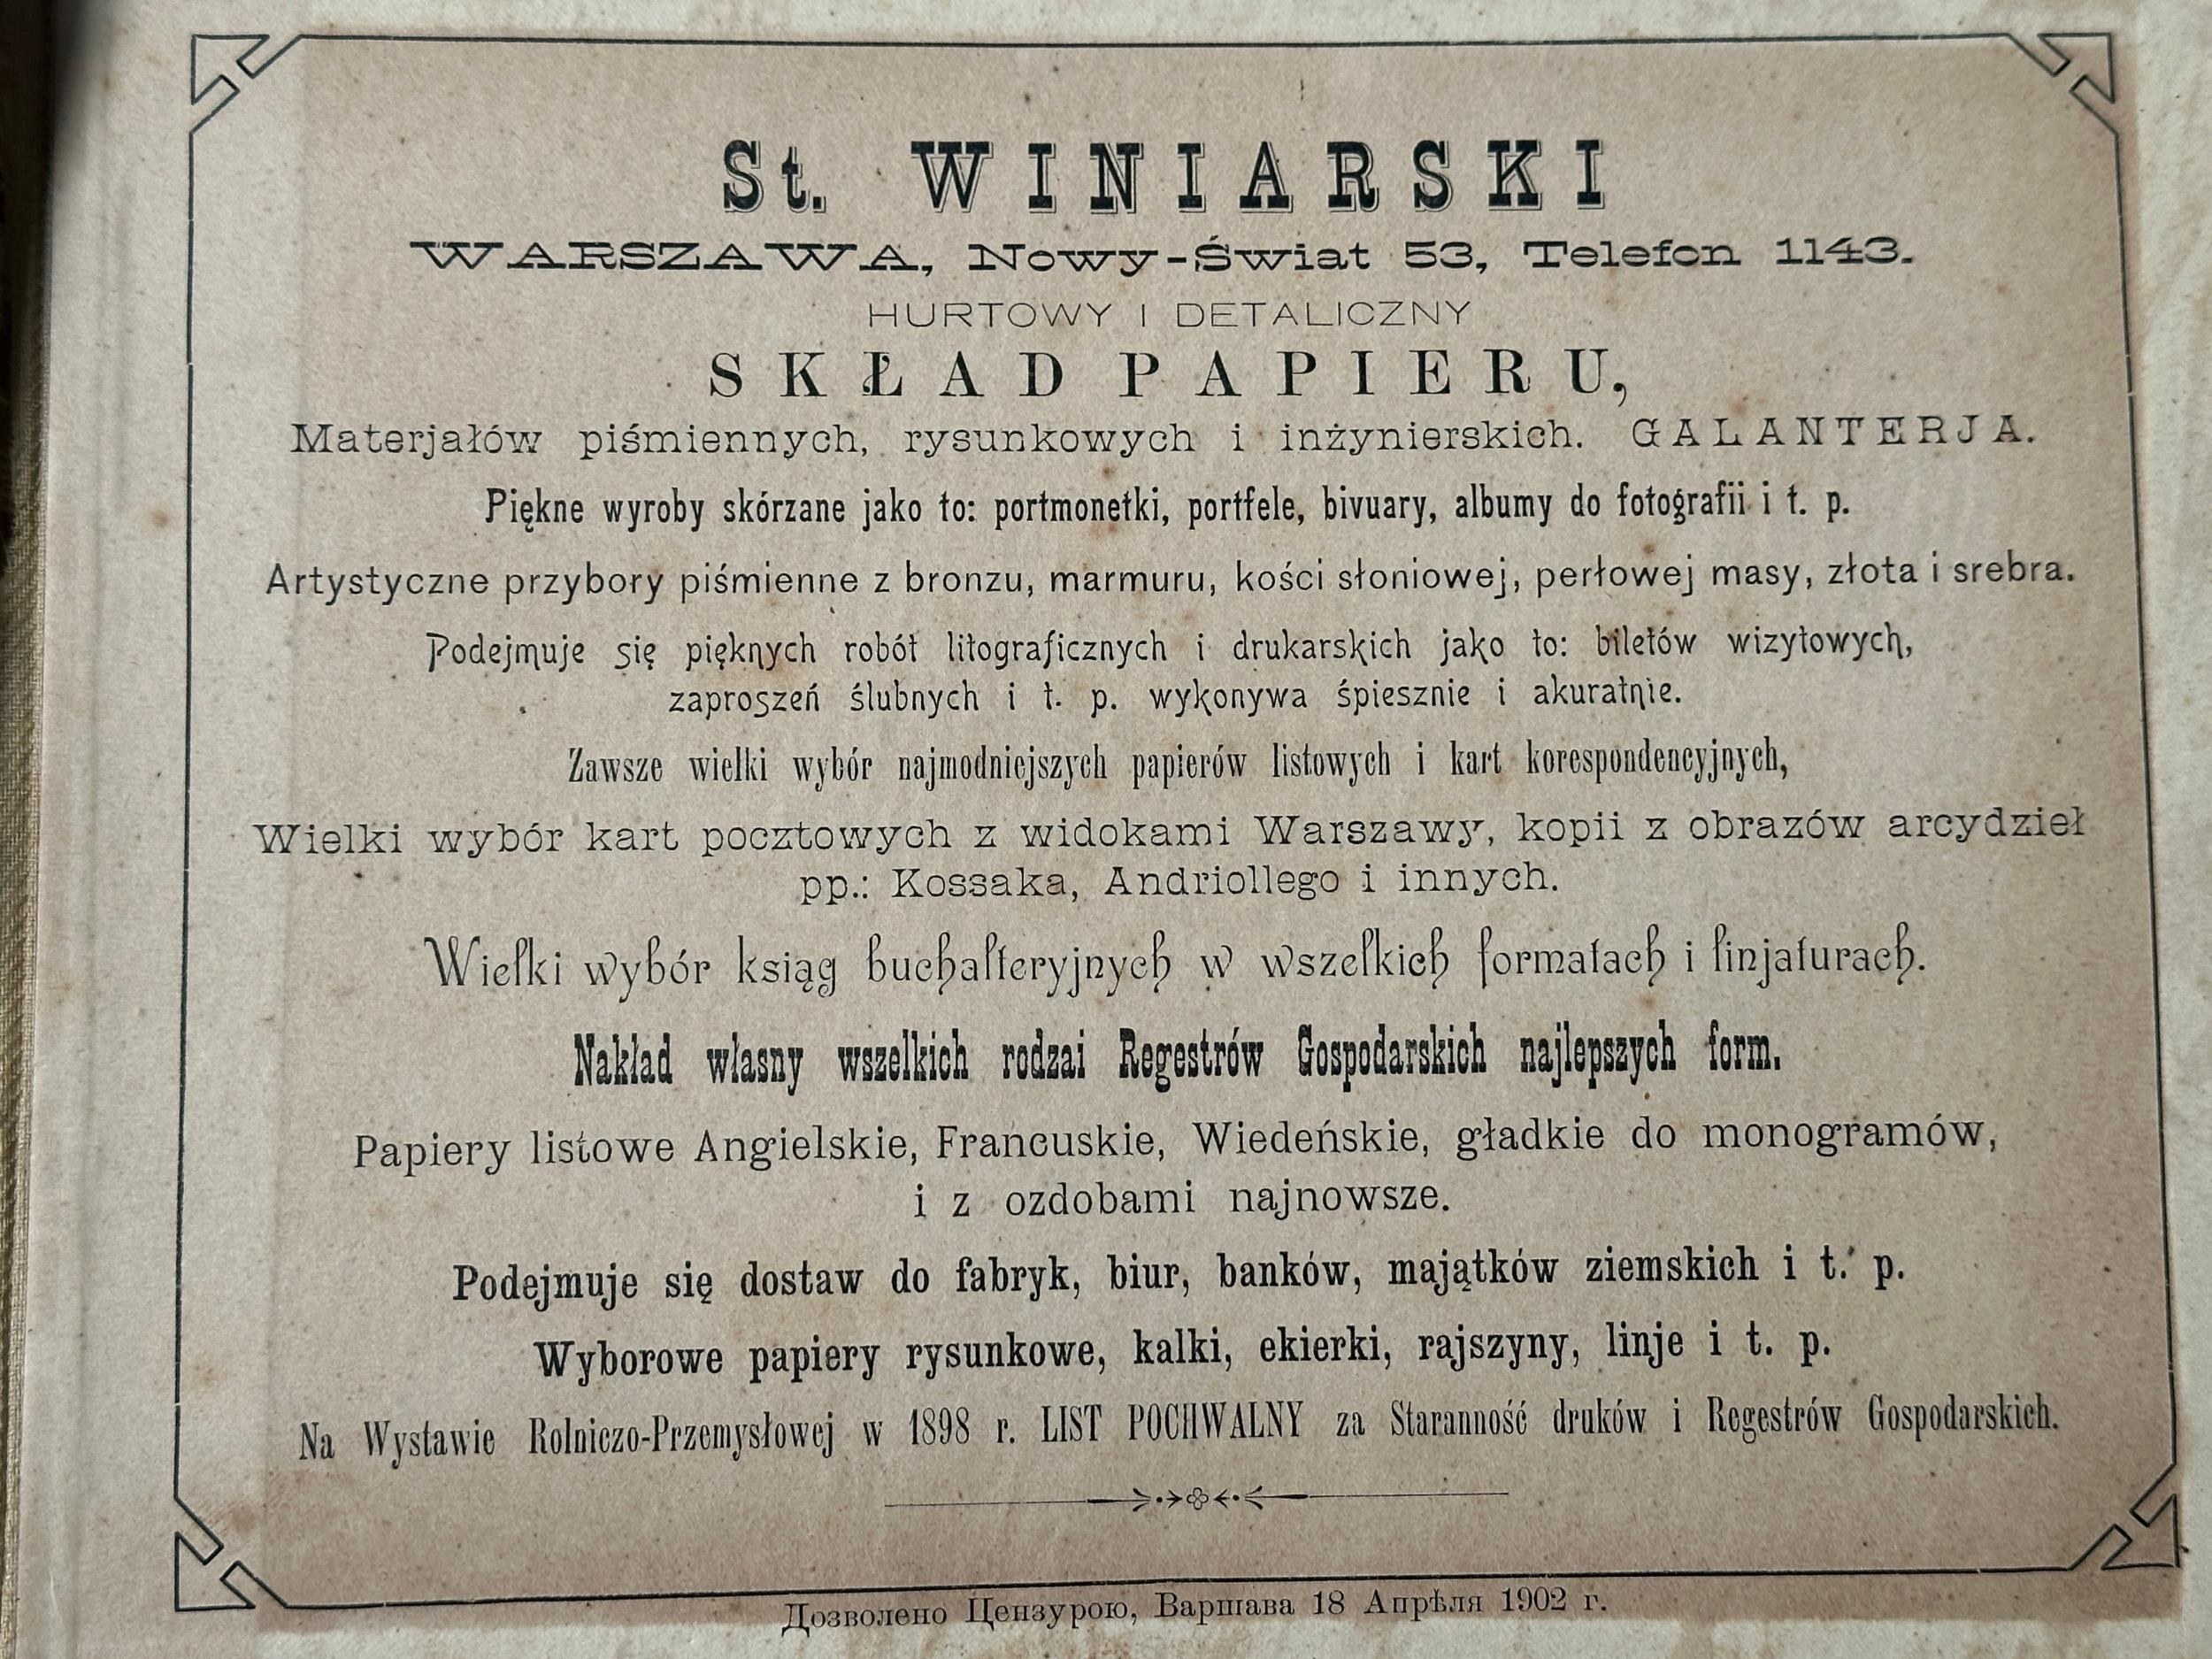 St. WINIARSKI
WARSZAWA, Nowy-Świat 53, Telefon 1143.
HURTOWY I DETALICZNY
SKŁAD PAPIERU,
Materjałów piśmiennych, rysunkowych i inżynierskich. GALANTERJA.
Piękne wyroby skórzane jako to: portmonetki, portfele, bivuary, albumy do fotografii i t. p.
Artystyczne przybory piśmienne z bronzu, marmuru, kości słoniowej, perłowej masy, złota i srebra.
Podejmuje się pięknych robót litograficznych i drukarskich jako to: biletów wizytowych,
zaproszeń ślubnych i t. p. wykonywa śpiesznie i akuratnie.
Zawsze wielki wybór najmodniejszych papierów listowych i kart korespondencyjnych,
Wielki wybór kart pocztowych z widokami Warszawy, kopii z obrazów arcydzieł
pp.: Kossaka, Andriollego i innych.
Wielki wybór ksiąg buchalteryjnych w wszelkich formatach i linjaturach.
Nakład własny wszelkich rodzai Regestrów Gospodarskich najlepszych form.
Papiery listowe Angielskie, Francuskie, Wiedeńskie, gładkie do monogramów,
i z ozdobami najnowsze.
Podejmuje się dostaw do fabryk, biur, banków, majątków ziemskich i t. p.
Wyborowe papiery rysunkowe, kalki, ekierki, rajszyny, linje i t. p.
Na Wystawie Rolniczo-Przemysłowej w 1898 r. LIST POCHWALNY za Staranność druków i Regestrów Gospodarskich.
Дозволено Цензурою, Варшава 18 Апрѣля 1902 г.